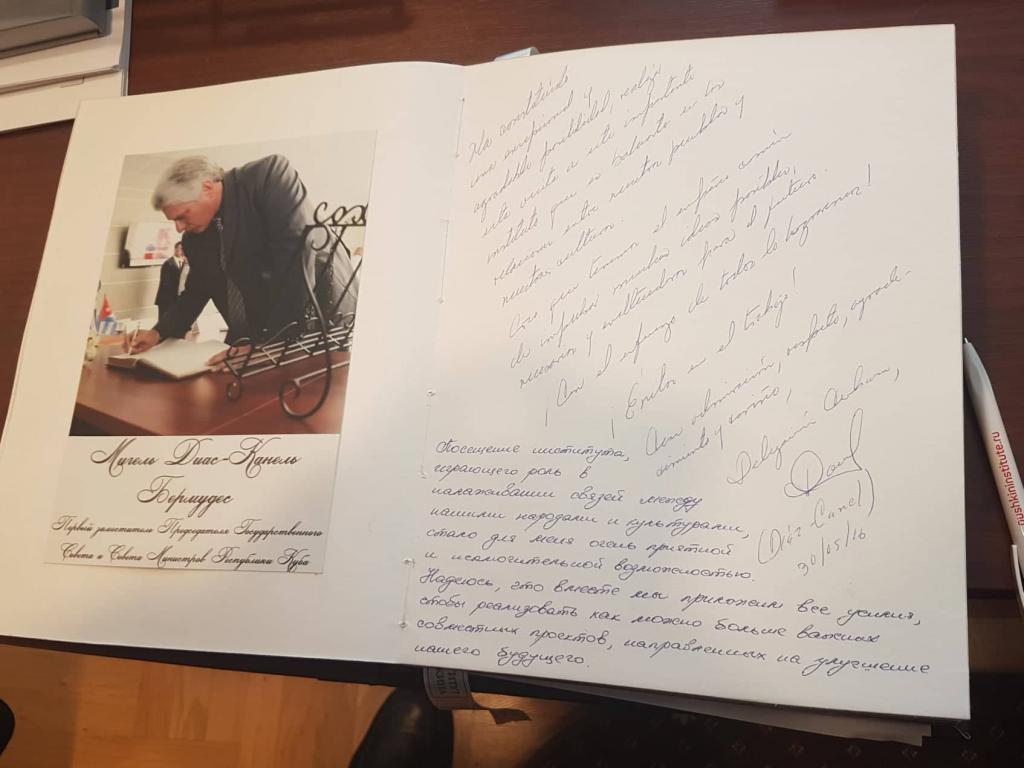 Мигель Диас-Канель
Бермудес
Первый заместитель Председателя Государственного
Совета и Совета Министров Республики Куба
Ha constituido
una excepcional y
agradable posibilidad, realizar
esta visita a este importante
instituto que es baluarte en las
relaciones entre nuestros pueblos y
nuestras culturas.
Creo que tenemos el empeño común
de impulsar muchas ideas posibles,
necesarias y en el futuro.
¡Con el esfuerzo de todos lo lograremos!
¡Éxitos en el trabajo!
Con admiración, respeto, agrade-
cimiento y cariño,
Delegación Cubana,
(Díaz Canel)
30/05/16
Посещение института,
играющего роль в
налаживании связей между
нашими народами и культурами,
стало для меня очень приятной
и исключительной возможностью.
Надеюсь, что вместе мы приложим все усилия,
чтобы реализовать как можно больше важных
совместных проектов, направленных на улучшение
нашего будущего.
pushkininstitute.ru